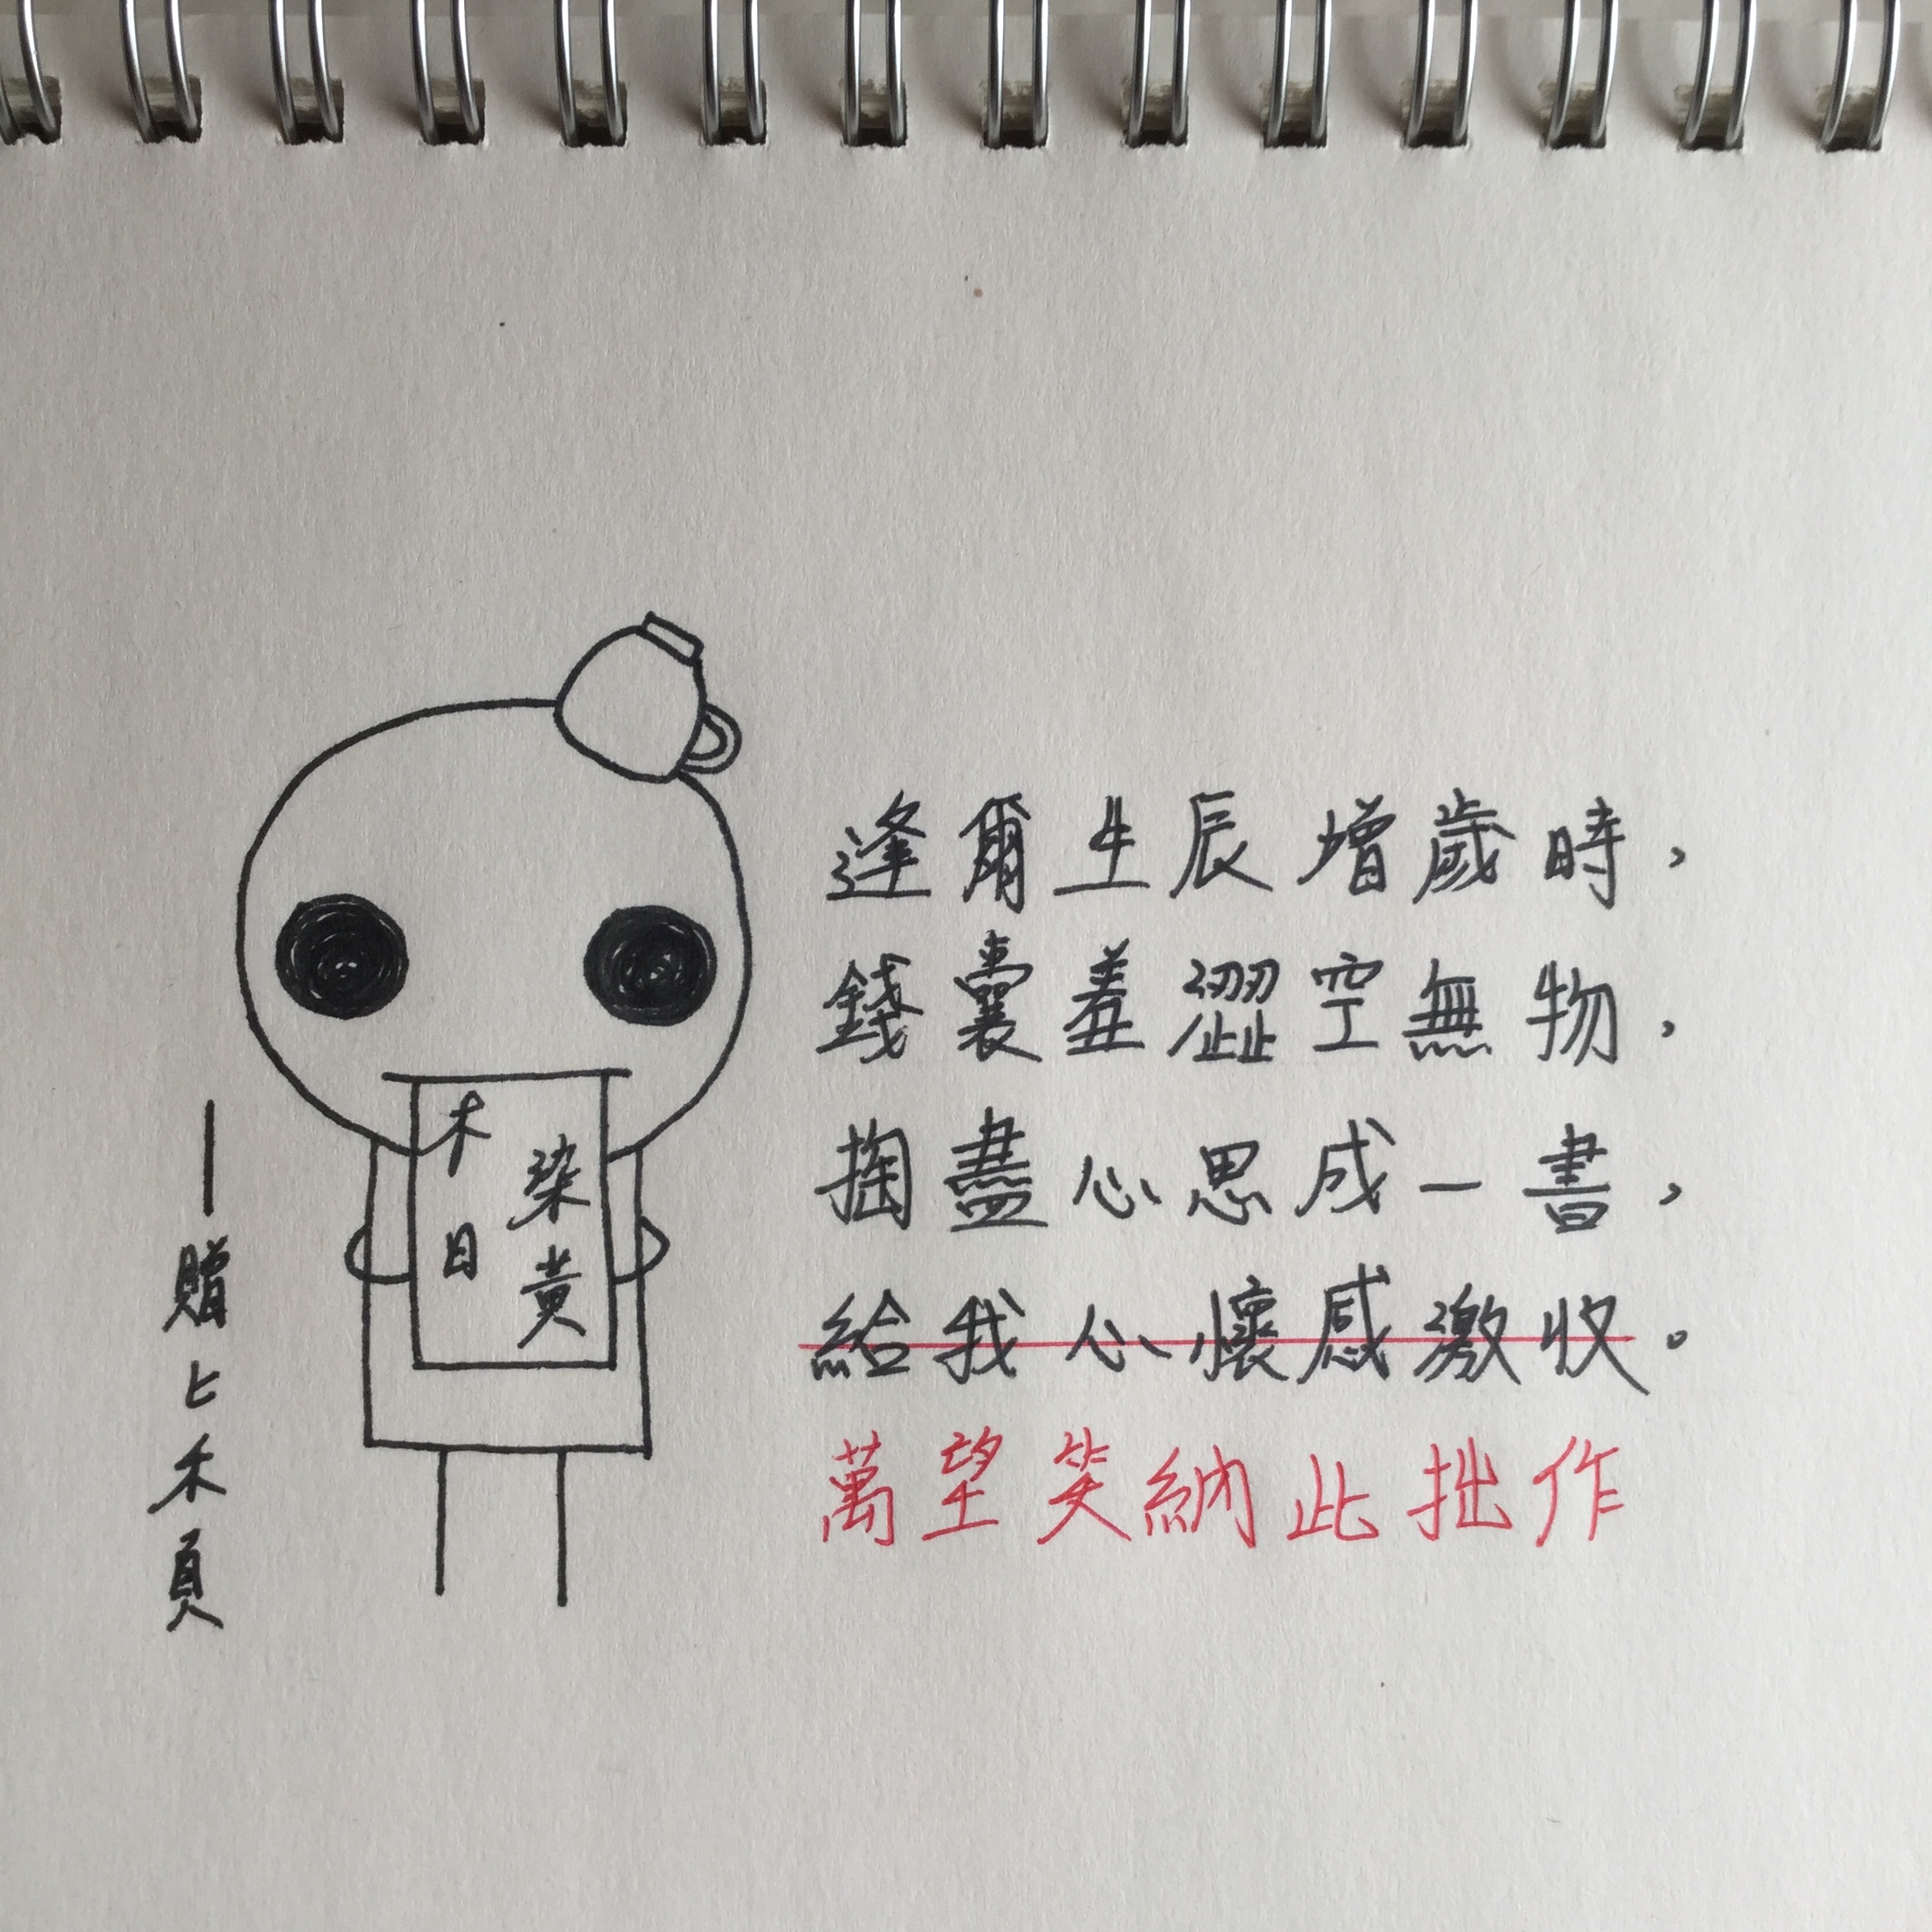 逢爾生辰增歲時，
錢囊羞澀空無物，
掏盡心思成一書，
給我心懷感激收。
萬望笑納此拙作
染黃
木日
—贈匕禾頁